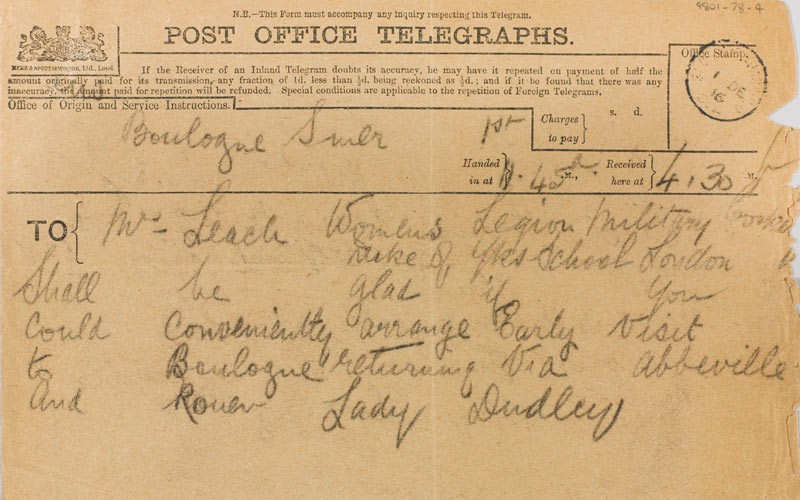 9801-78-4
N.B.—This Form must accompany any inquiry respecting this Telegram.
POST OFFICE TELEGRAPHS.
If the Receiver of an Inland Telegram doubts its accuracy, he may have it repeated on payment of half the
amount originally paid for its transmission, any fraction of 1d. less than ½d. being reckoned as ½d.; and if it be found that there was any
inaccuracy, the amount paid for repetition will be refunded. Special conditions are applicable to the repetition of Foreign Telegrams.
Office Stamp.
1 DE
16
Office of Origin and Service Instructions.
Boulogne Smer
1st
Charges to pay
s. d.
Handed in at 11.45 a M.,
Received here at 4.30 M.
TO Mrs Leach Womens Legion Military
Duke of Yks School London
Shall be glad if you
could conveniently arrange Early visit
to Boulogne returning Via Abbeville
And Rouen Lady Dudley